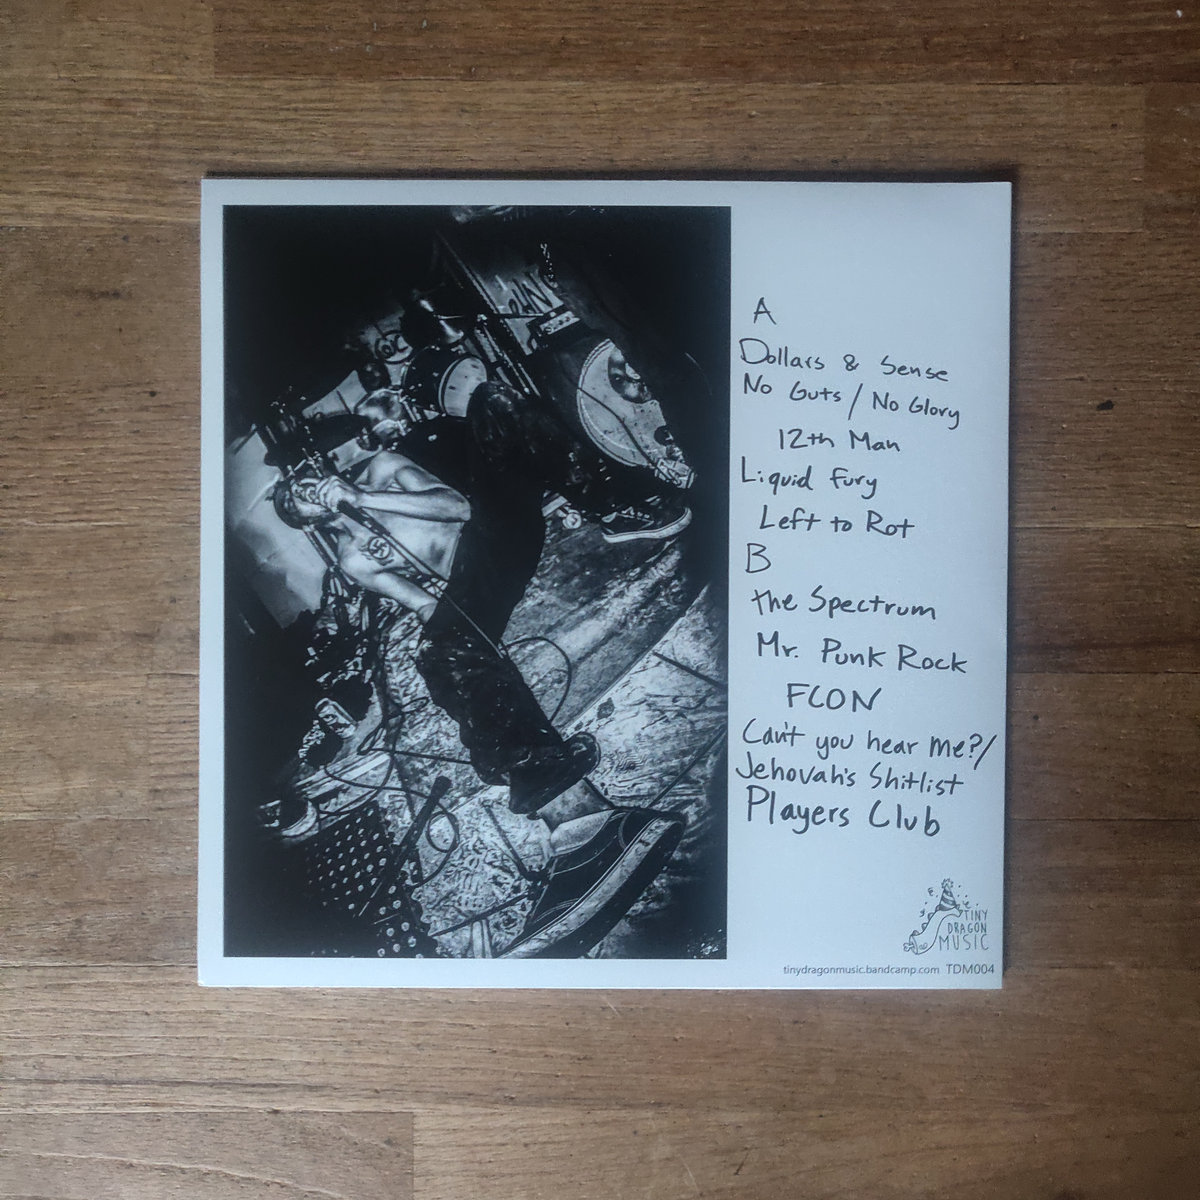 A
Dollars & Sense
No Guts / No Glory
12th Man
Liquid Fury
Left to Rot
B
the Spectrum
Mr. Punk Rock
FCON
Can't you hear me?/
Jehovah's Shitlist
Players Club
TINY
DRAGON
MUSIC
tinydragonmusic.bandcamp.com TDM004